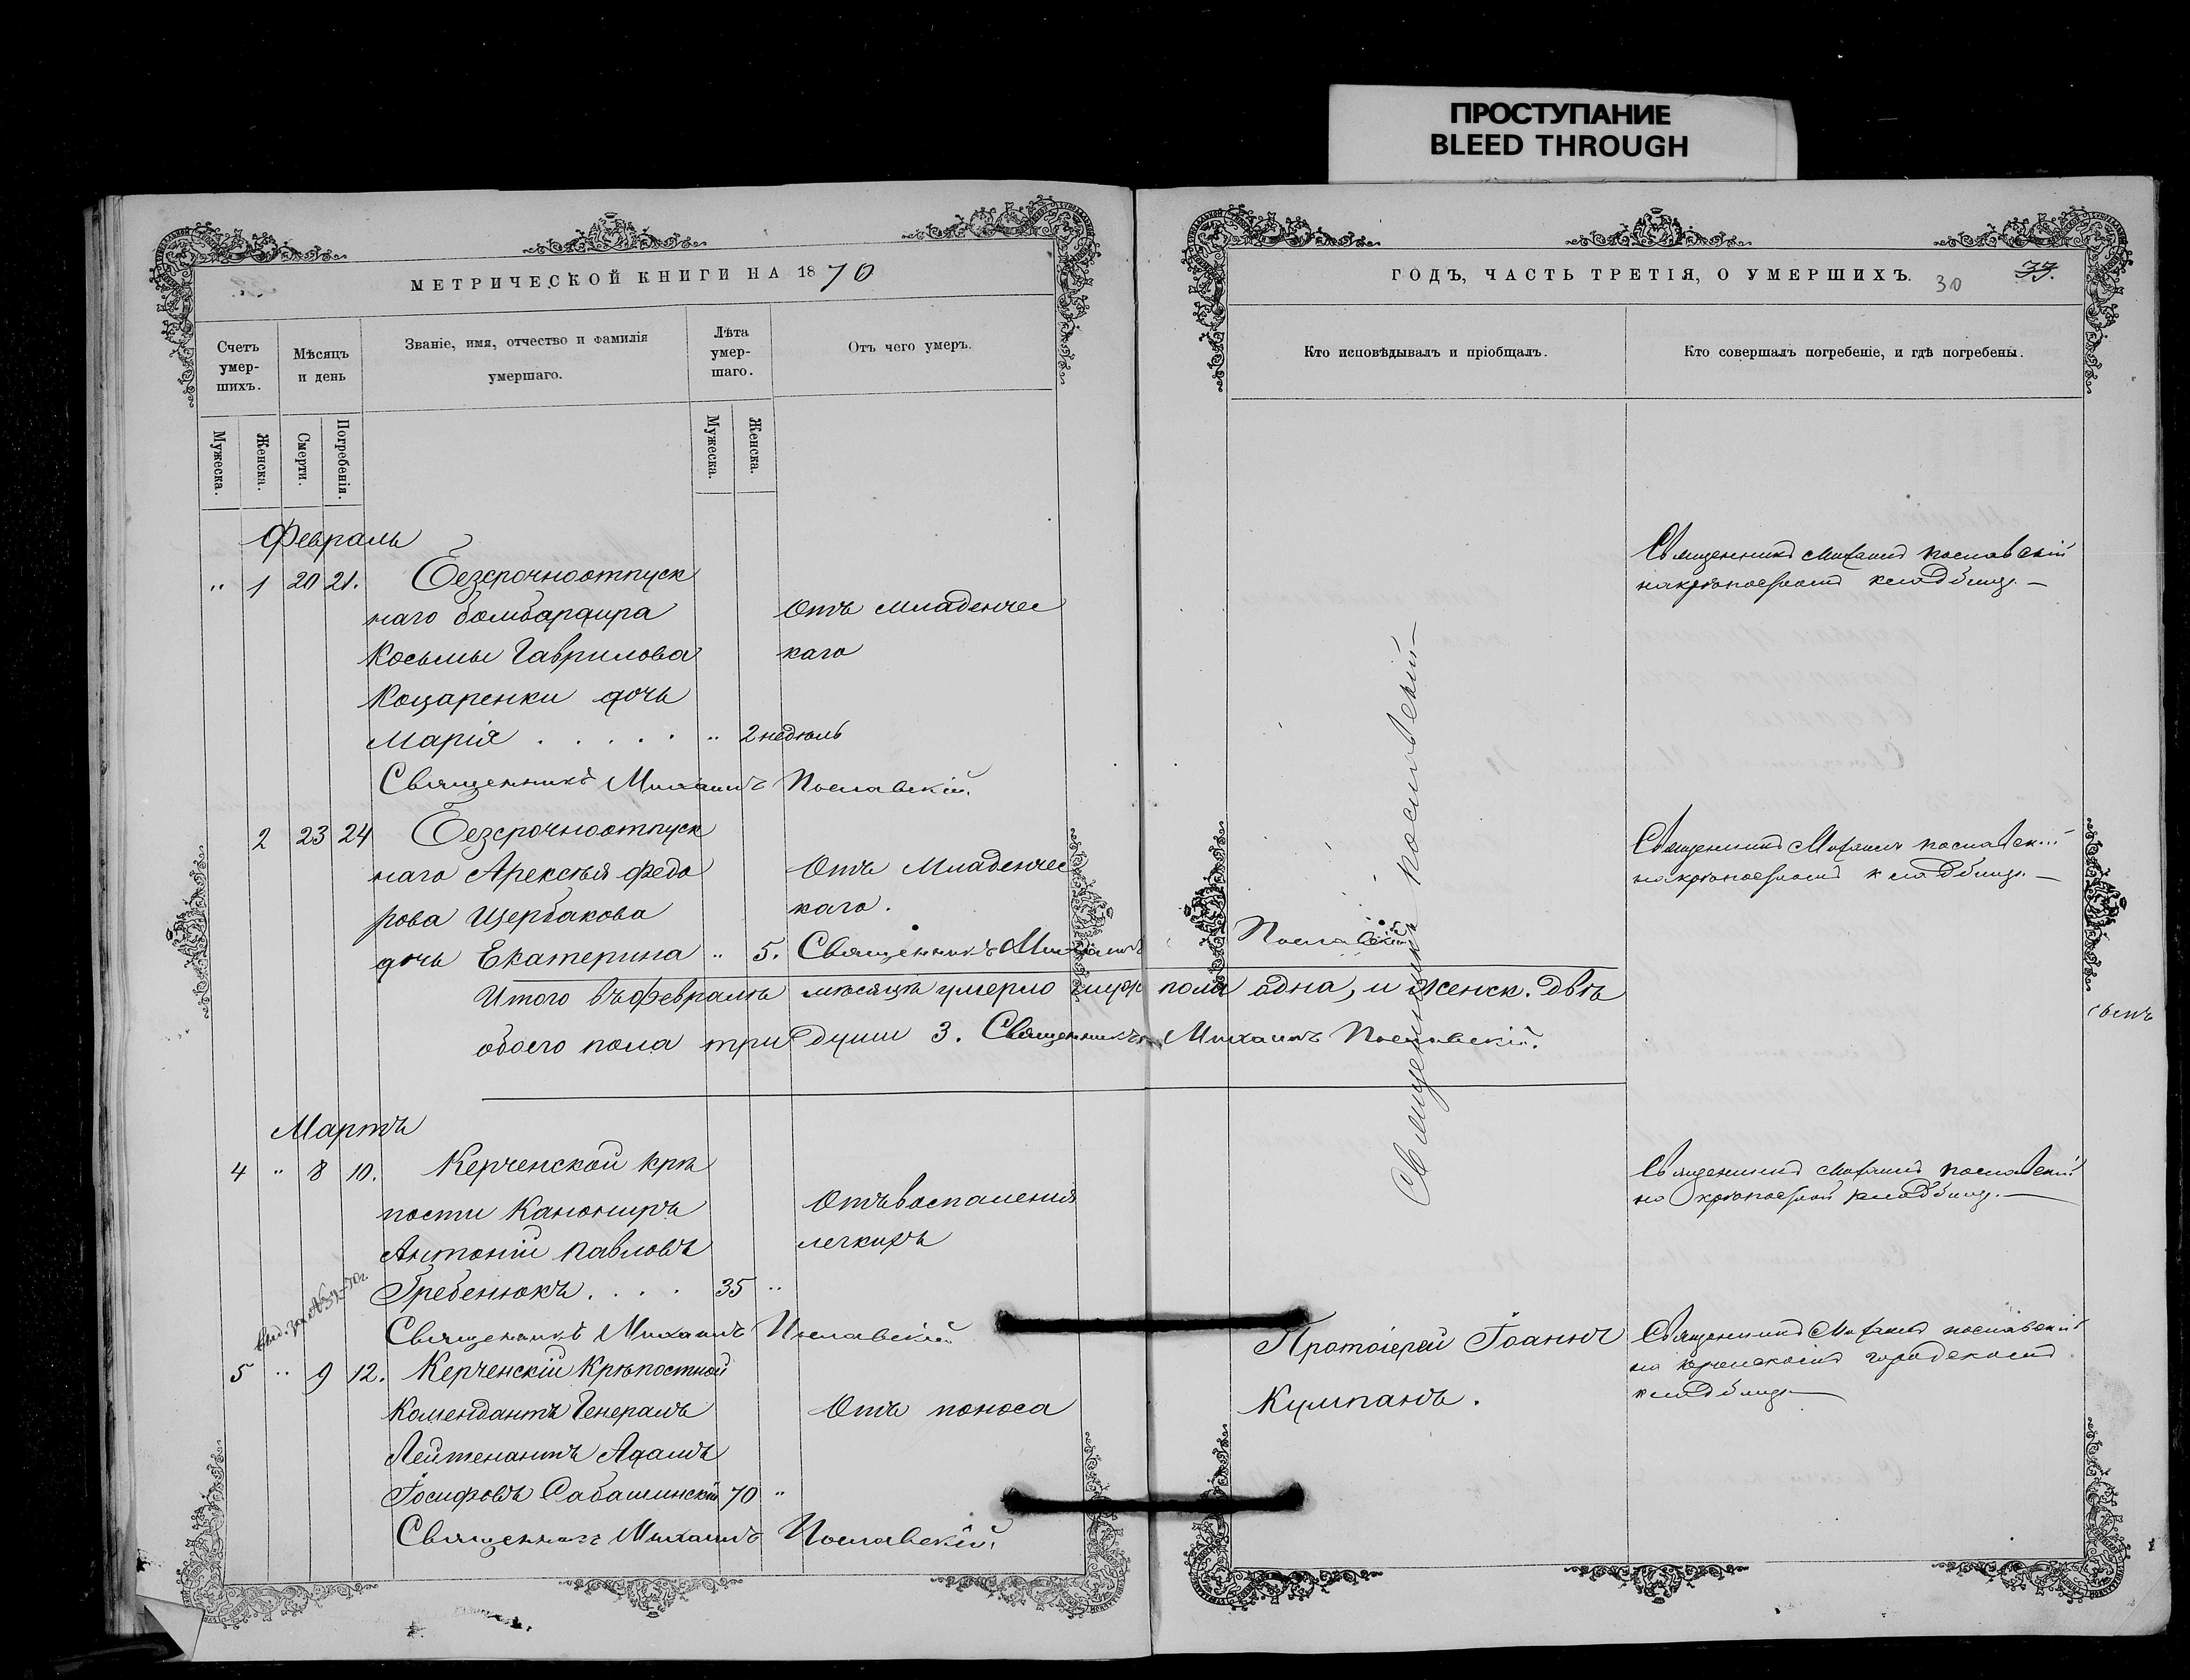 ПРОСТУПАНИЕ
BLEED THROUGH
МЕТРИЧЕСКОЙ КНИГИ НА 1870
Счетъ умер-шихъ.
Мѣсяцъ и день
Званіе, имя, отчество и фамилія умершаго.
Лѣта умер-шаго.
Отъ чего умеръ.
Мужеска.
Женска.
Смерти.
Погребенія.
Мужеска.
Женска.
Февраль
" 1 20 21. Безсрочноотпуск
наго бомбардира Отъ младенчес
Косьмы Гаврилова каго
Коцаренки дочь
Марія . . . . . " 2 недѣль
Священникъ Михаилъ Пославскій.
2 23 24 Безсрочноотпуск
наго Алексѣя Федо Отъ Младенчес
рова Щербакова каго.
дочь Екатерина " 5. Священникъ Михаилъ Пославскій
Итого въ февралѣ мѣсяцѣ умерло муж пола одна, и женск. двѣ
обоего пола три души 3. Священникъ Михаилъ Пославскій.
Мартъ
4 " 8 10. Керченской крѣ
пости Канониръ Отъ воспаленія
Антоній Павловъ легкихъ
Гребенюкъ . . . . 35 "
Священникъ Михаилъ Пославскій
5 " 9 12. Керченскій Крѣпостной
Комендантъ Генералъ Отъ поноса
Лейтенантъ Адамъ
Іосифовъ Сабашинскій 70 "
Священникъ Михаилъ Пославскій.
ГОДЪ, ЧАСТЬ ТРЕТІЯ, О УМЕРШИХЪ.
30
37.
Кто исповѣдывалъ и пріобщалъ.
Кто совершалъ погребеніе, и гдѣ погребены.
Священникъ Михаилъ Пославскій
на крѣпостномъ кладбищѣ. —
Священникъ Михаилъ Пославскій
на крѣпостномъ кладбищѣ. —
Священникъ Пославскій —
Священникъ Михаилъ Пославскій
на крѣпостной кладбищѣ. —
Протоіерей Іоаннъ
Кумпанъ.
Священникъ Михаилъ Пославскій
на керченскомъ городскомъ
кладбищѣ —